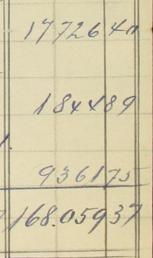 1772640
184489
1.
936175
168.05937